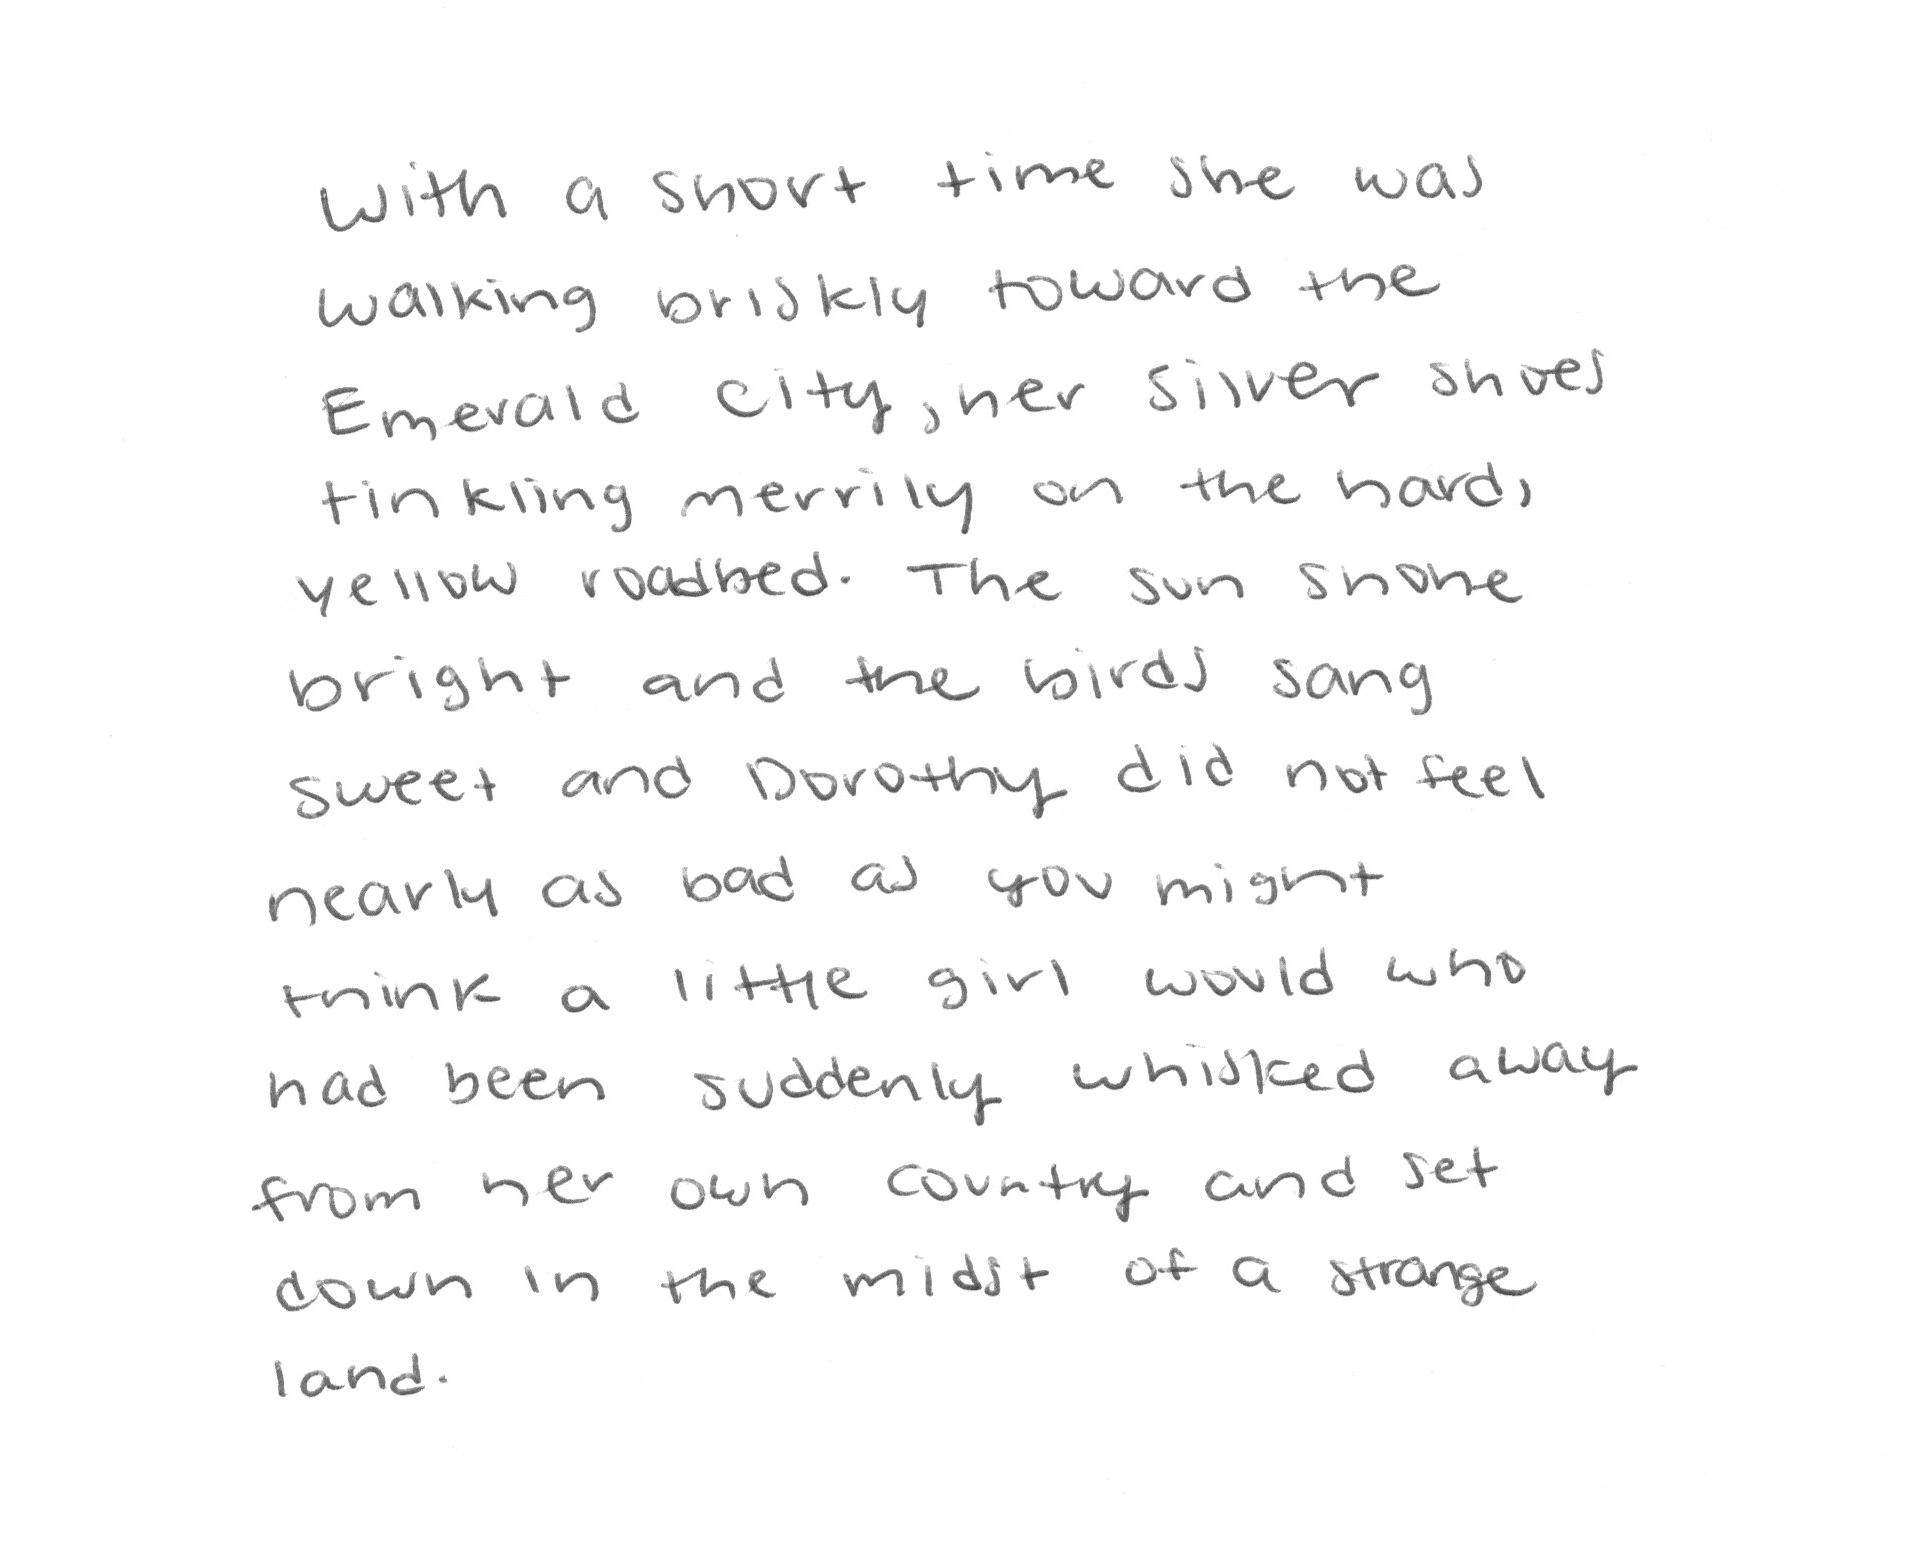 With a short time she was
walking briskly toward the
Emerald City, her silver shoes
tinkling merrily on the hard,
yellow roadbed. The sun shone
bright and the birds sang
sweet and Dorothy did not feel
nearly as bad as you might
think a little girl would who
had been suddenly whisked away
from her own country and set
down in the midst of a strange
land.